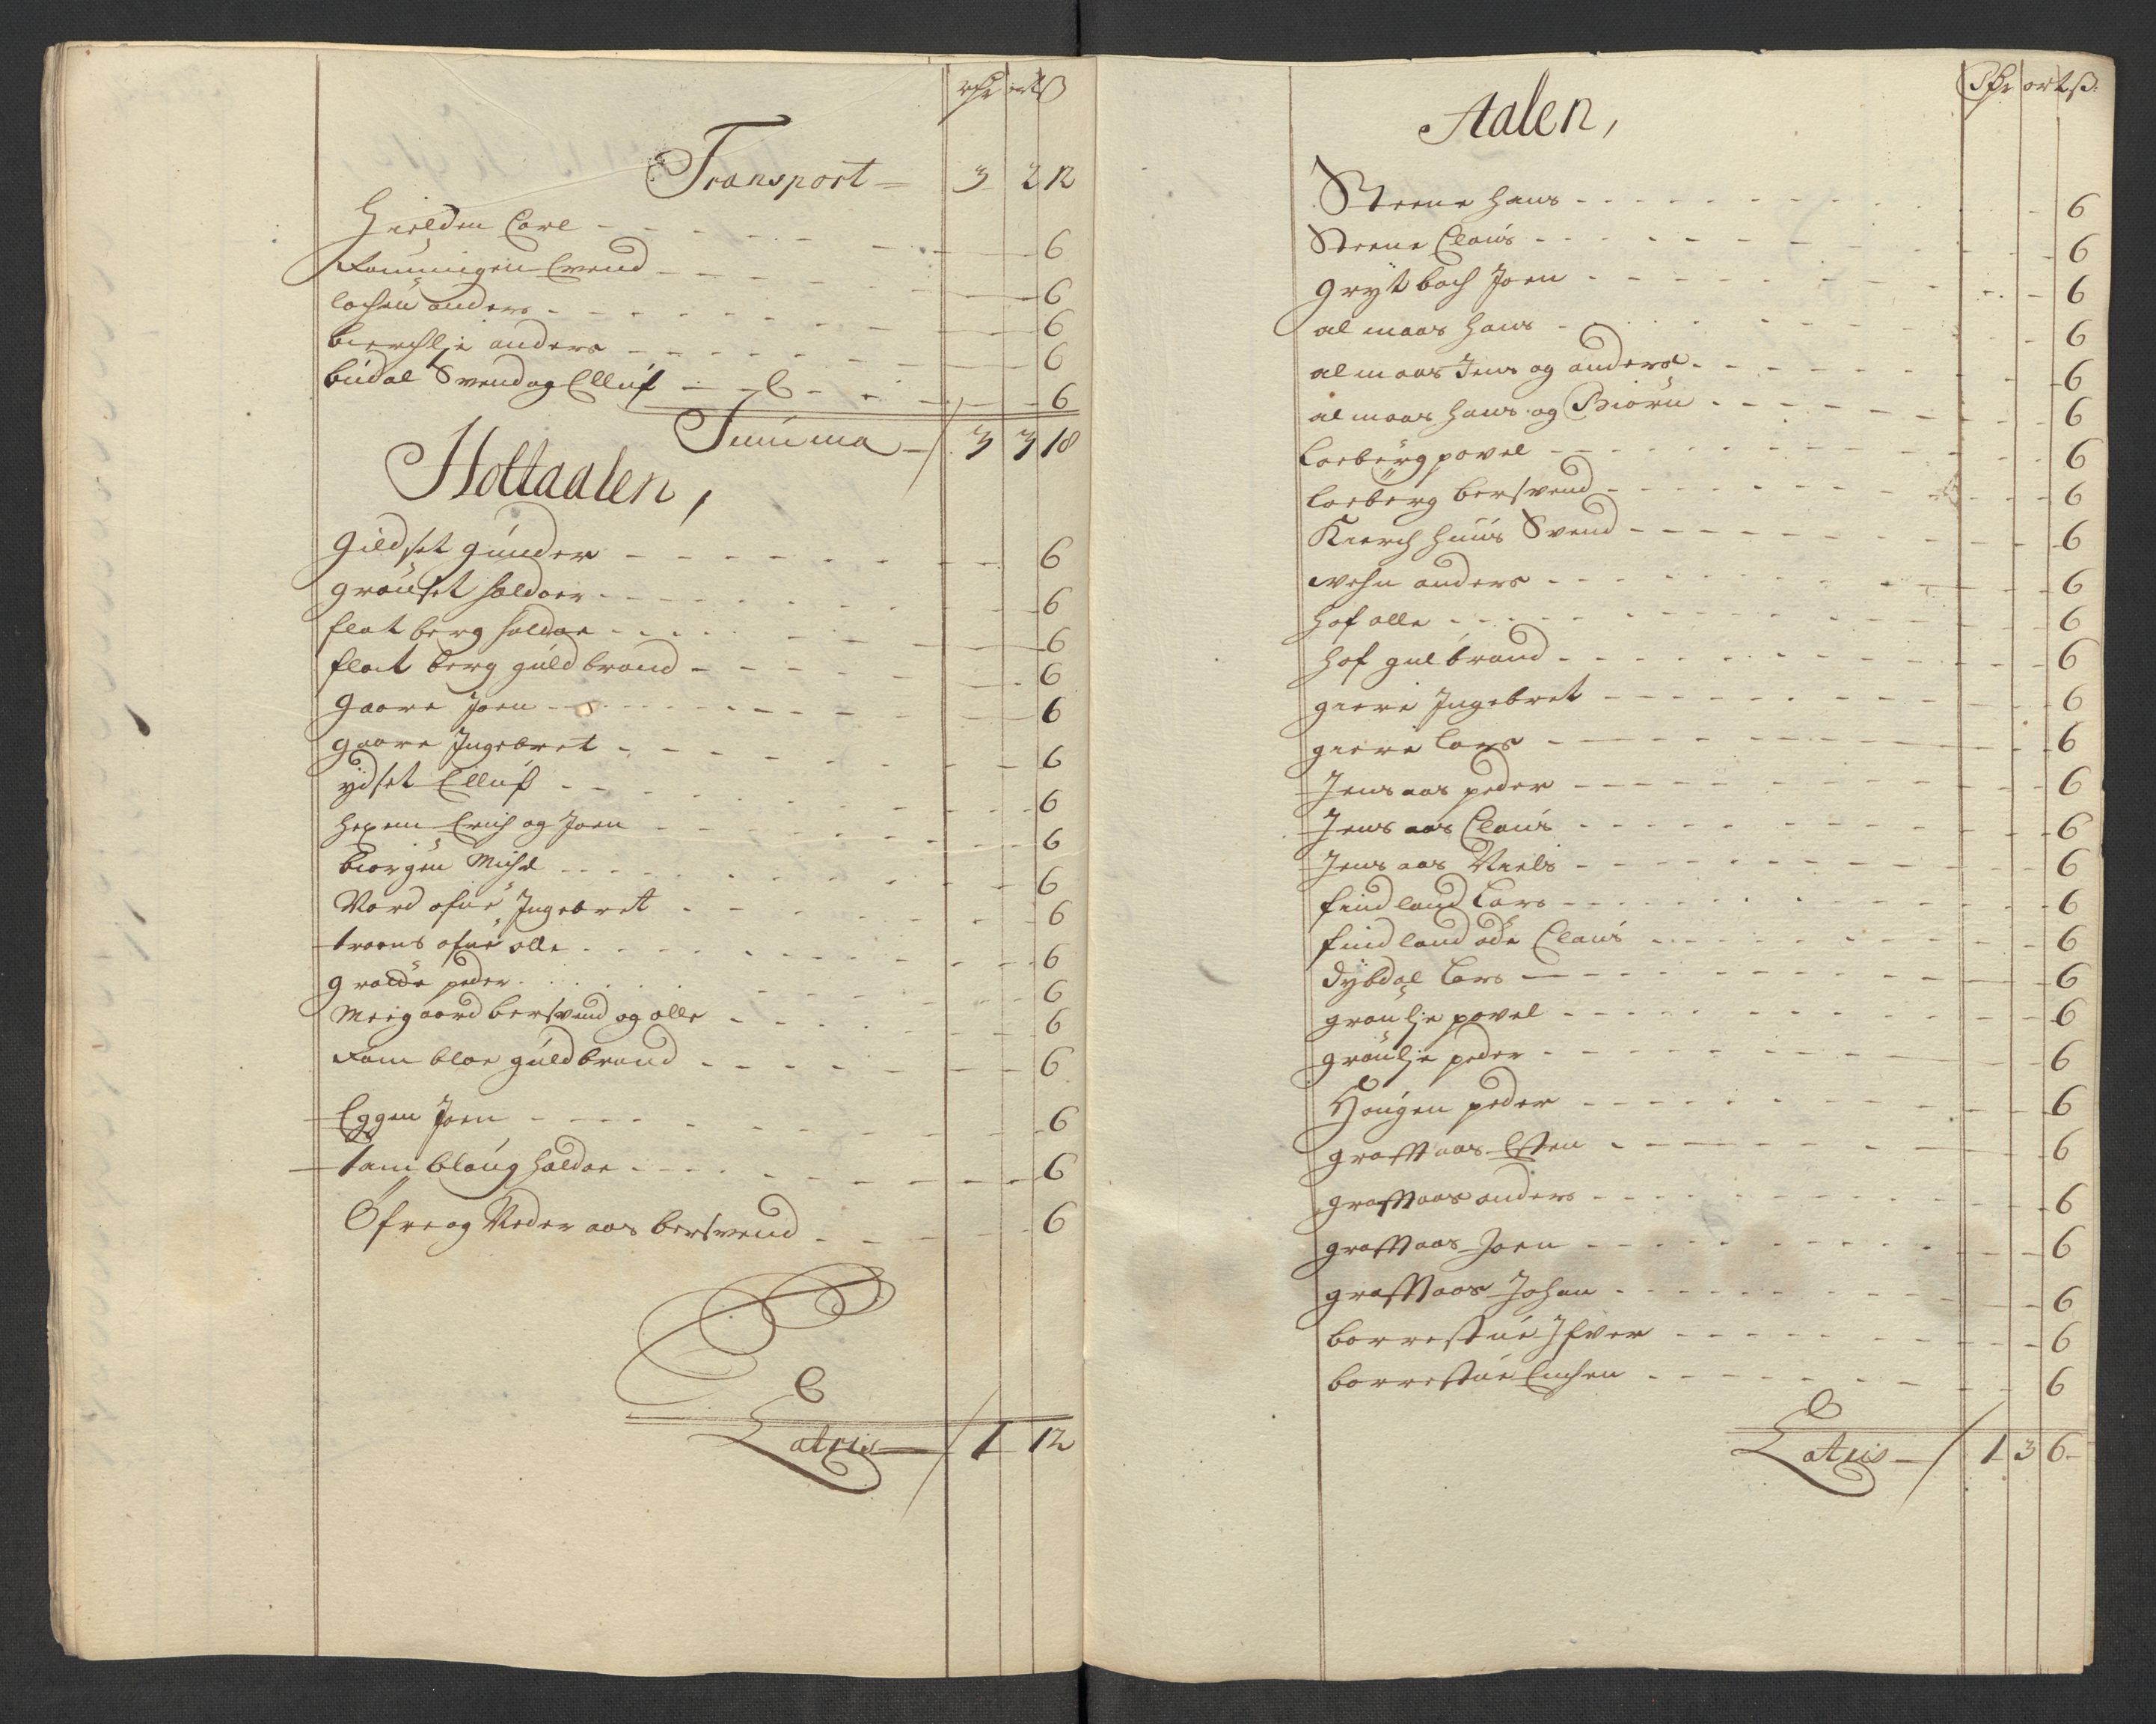 rdr ort ß
Transport 3 2 12
Hielden Carl 6
Ramningen Svend 6
lochen anders 6
bierchlie anders 6
budal Svend og Elluf 6
Summa 3 3 18
Holtaalen,
Gildset gunder 6
grønset haldoer 6
flat berg haldoe 6
flat berg guldbrand 6
gaare Joen 6
gaare Ingebret 6
ydset Elluf 6
hexem Erich og Joen 6
biørgen Michel 6
Nord ofne Ingebret 6
troens ofne olle 6
peder 6
Meegaard bersvend og olle 6
Ram bloe guldbrand 6
Eggen Joen 6
Tam blaug haldoe 6
Øfre og Neder aas bersvend 6
Latris 1 12
Aalen,
Sdr ort ß.
Steene hans 6
Steene Claus 6
grytbach Joen 6
almaas hans 6
almaas Jens og anders 6
almaas hans og Biørn 6
Loeberg povel 6
loeberg bersvend 6
Kierch huus Svend 6
wehn anders 6
hof olle 6
hof gulbrand 6
giere Ingebret 6
giere Lars 6
Jensaas peder 6
Jensaas Claus 6
Jensaas Niels 6
findland Lars 6
findland øde Claus 6
dybdal Lars 6
grønlje povel 6
grønlje peder 6
Haugen peder 6
graftaas Esten 6
graftaas anders 6
graftaas Joen 6
graftaas Johan 6
borrestue Ifver 6
borrestue 6
Latris 1 3 6